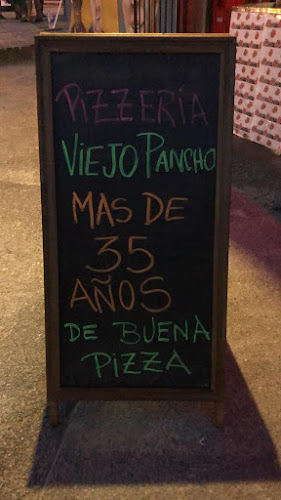 PIZZERÍA
VIEJO PANCHO
MAS DE
35
AÑOS
DE BUENA
PIZZA